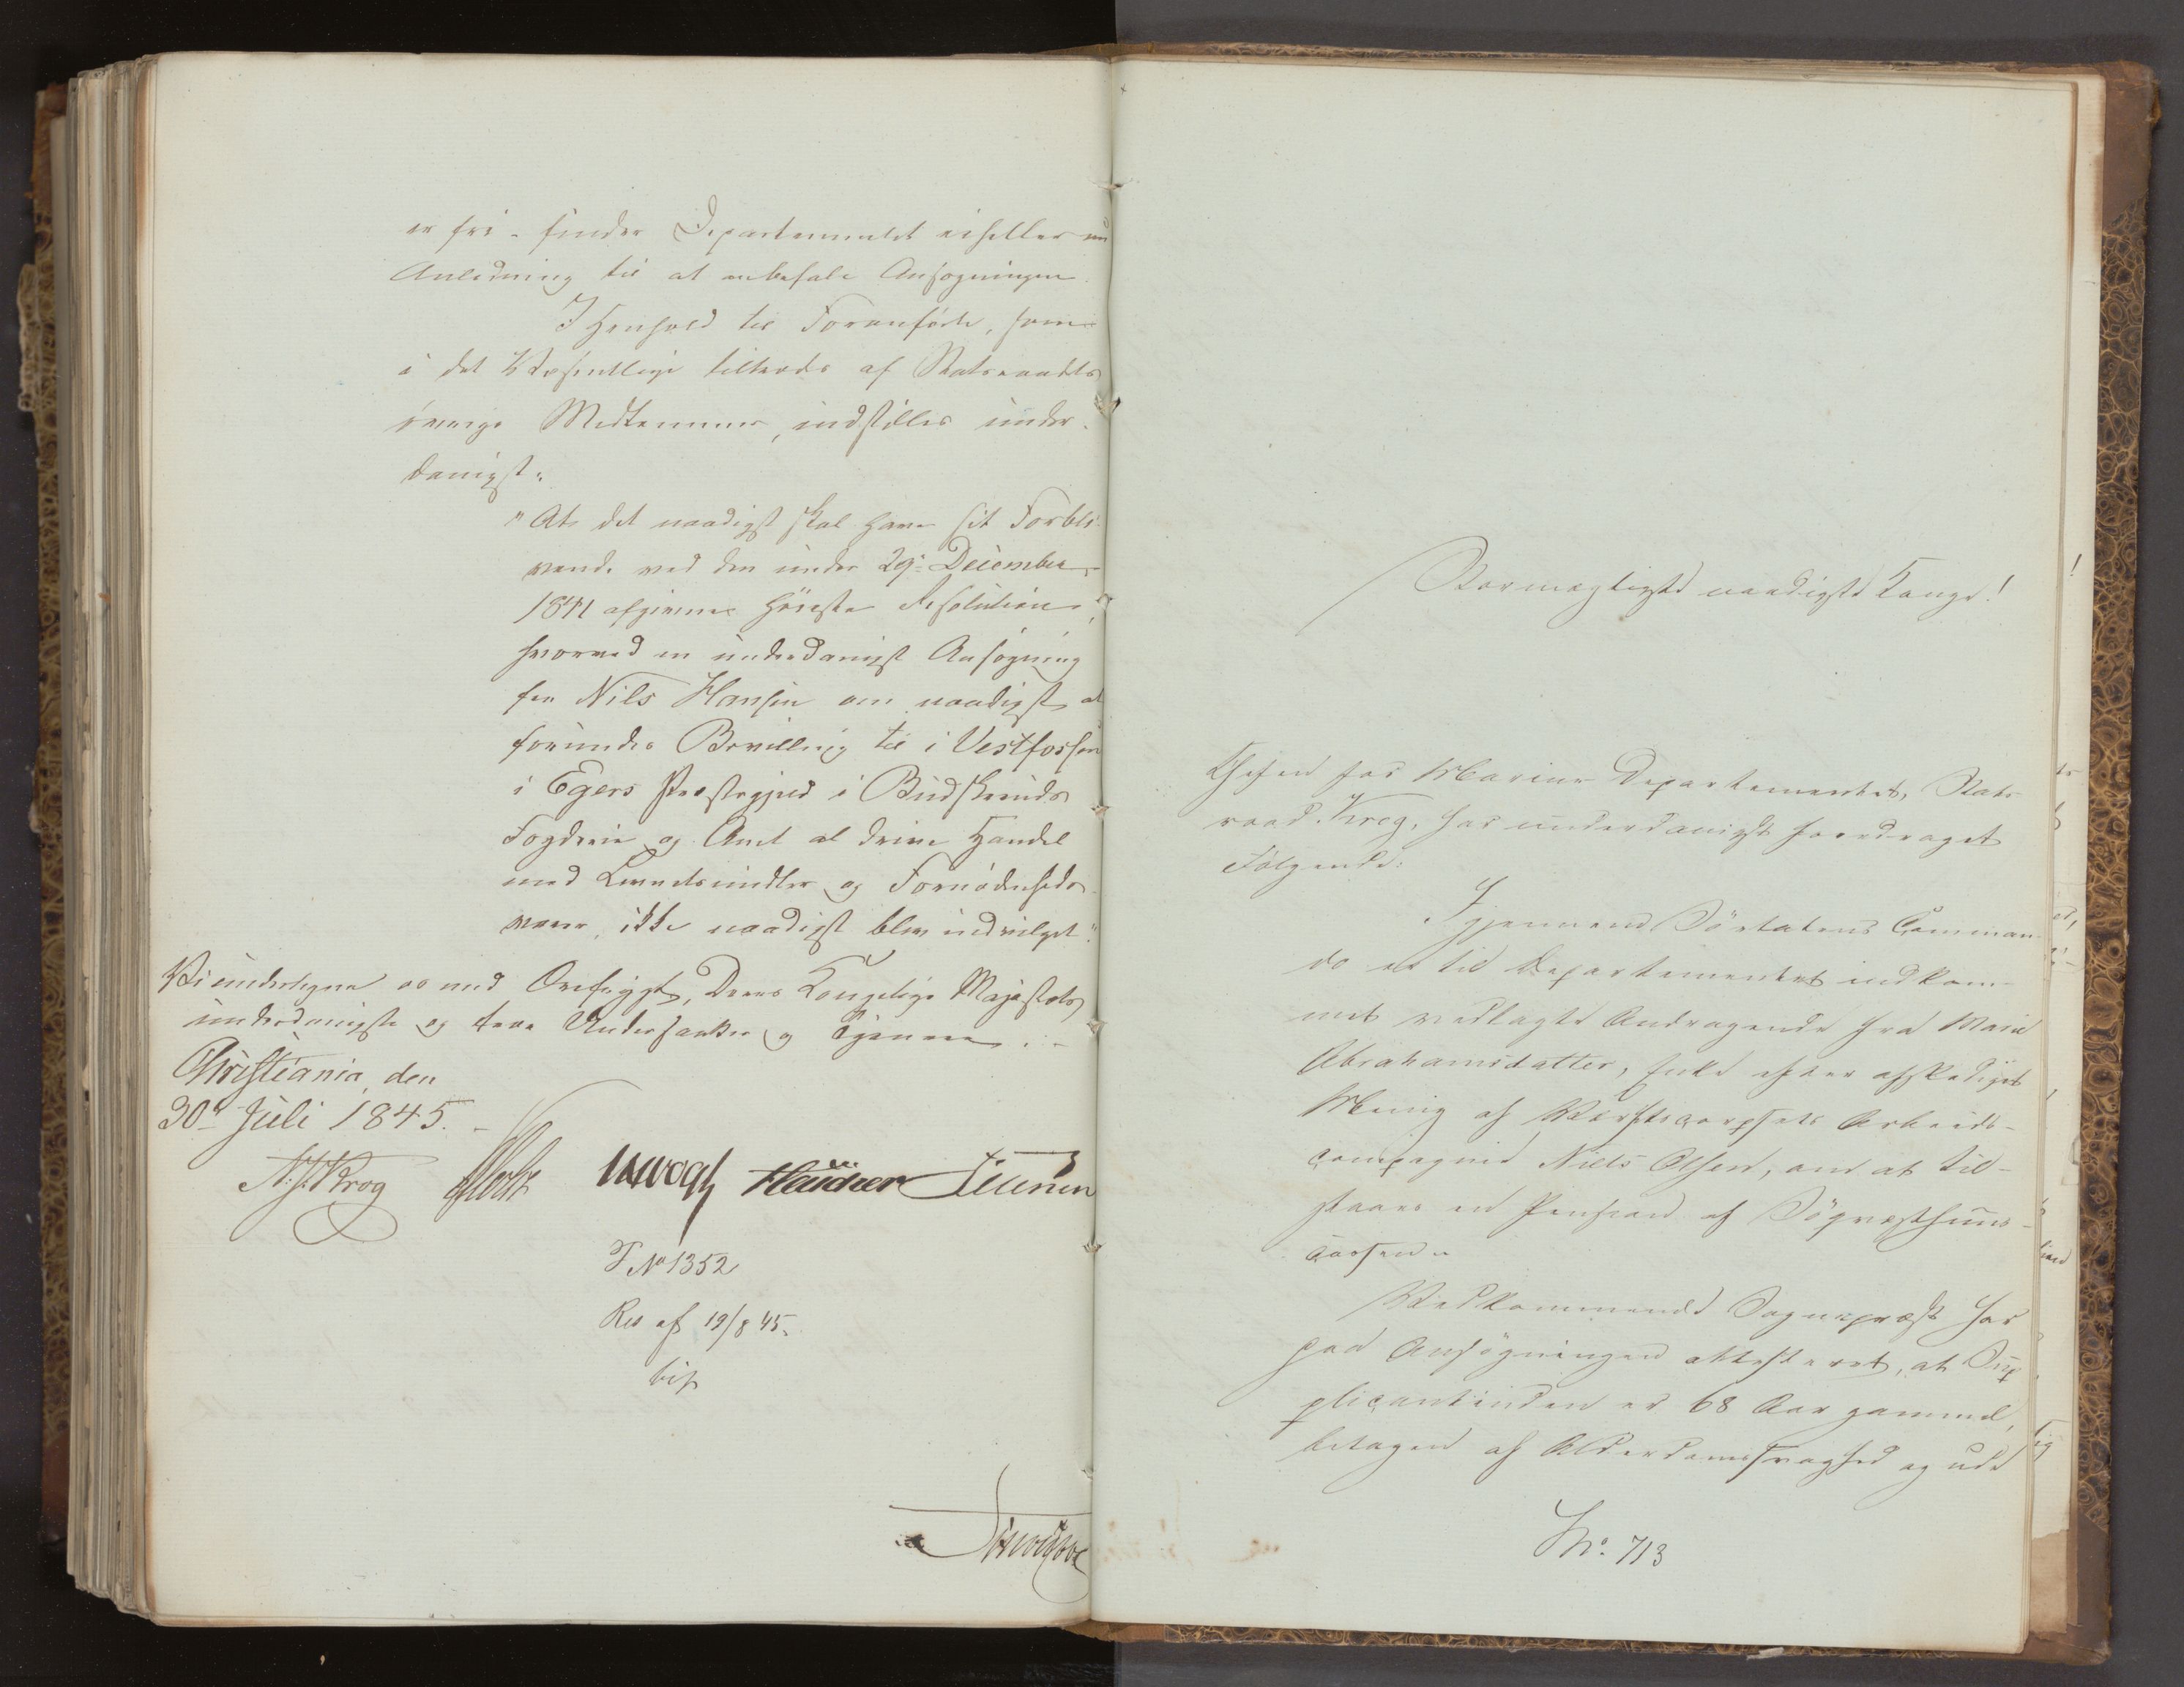 er fri – finder Departementet eiheller nu
Anledning til at anbefale Ansøgningen.
I Henhold til Foranførte, som
i det Væsentlige tiltrædes af Statsraadets
øvrige Medlemmer, indstilles under-
danigst:
"At det naadigst skal have sit Forbli-
vende ved den under 29de December
1841 afgivne høieste Resolution,
hvorved en underdanigst Ansøgning
fra Nils Hansen om naadigst at
forundes Bevilling til i Vestfossen
i Egers Præstegjeld i Buskeruds
Fogderie og Amt at drive Handel
med Levnetsmidler og Fornødenheds-
varer, ikke naadigst blev indvilget".
Vi undertegne os med Ærefrygt, Deres Kongelige Majestæts
underdanigste og troe Undersaatter og Tjenere.
Christiania, den
30te Juli 1845.
N. J. Krog Holst JHVogt
T No 1352
Res af 19/8 45.
bif
Stormægtigste naadigste Konge!
Chefen for Marine-Departementet, Stats-
raad Krog, har underdanigst foredraget
Følgende:
Igjennem Søetatens Comman-
do er til Departementet indkom-
met vedlagte Andragende fra Marie
Abrahamsdatter, Enke efter afskediget
Menig af Værftscorpsets Arbeids-
compagnie Niels Olsen, om at til-
staaes en Pension af Søqvæsthuus-
Cassen.
Vedkommende Sognepræst har
paa Ansøgningen attesteret, at Sup-
plicantinden er 68 Aar gammel,
betagen af Alderdomssvaghed og ude
No. 713